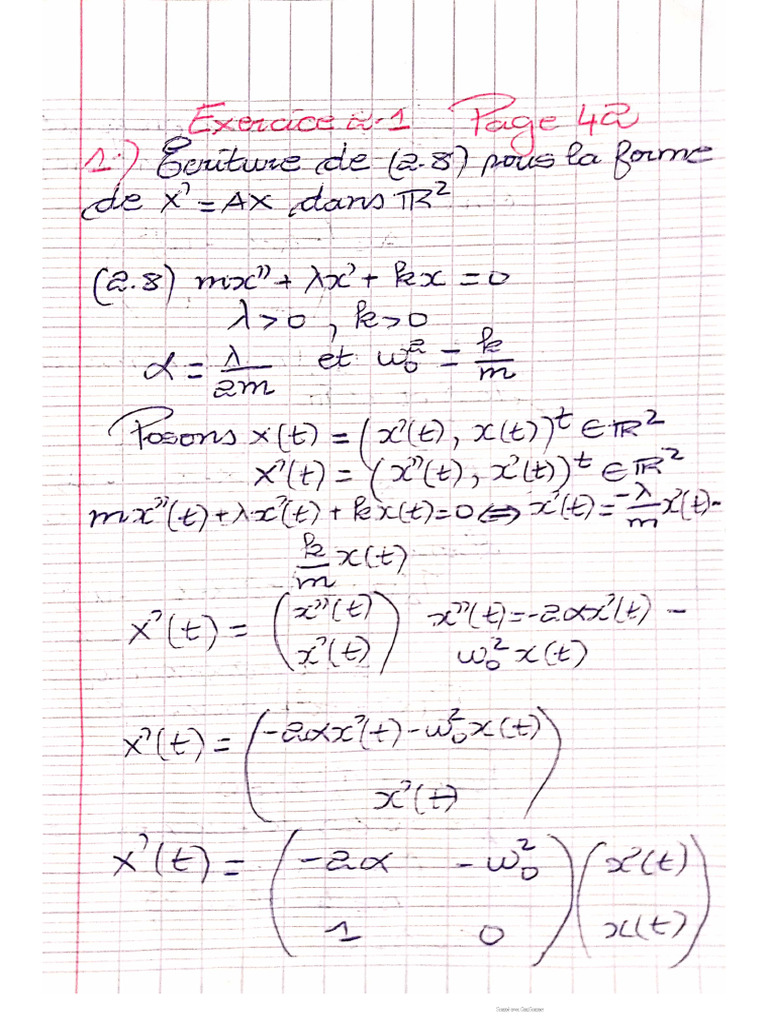 Exercice 2.1 Page 42
1.) Ecriture de (2.8) sous la forme
de X' = AX dans ℝ²
(2.8) mx'' + λx' + kx = 0
λ > 0 , k > 0
α = λ/2m et ω₀² = k/m
Posons X(t) = (x'(t), x(t))ᵗ ∈ ℝ²
X'(t) = (x''(t), x'(t))ᵗ ∈ ℝ²
mx''(t) + λx'(t) + kx(t) = 0 ⇔ x'(t) = -λ/m x'(t) -
k/m x(t)
X'(t) = (x''(t) x'(t)) x''(t) = -2αx'(t) -
ω₀² x(t)
X'(t) = (-2αx'(t) - ω₀² x(t)
x'(t))
X'(t) = (-2α -ω₀² (x'(t)
1 0) x(t))